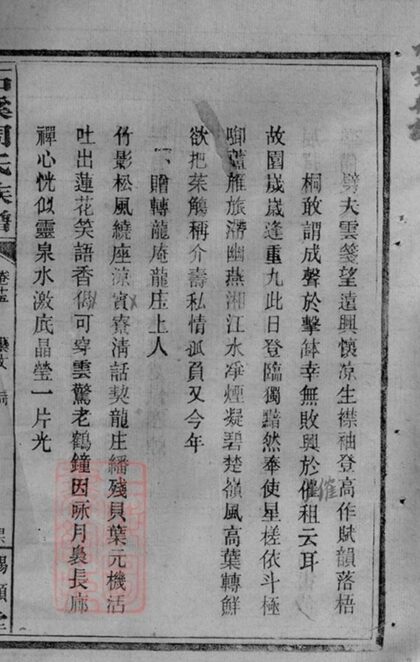 劈夫雲箋望遠興懷凉生襟袖登高作賦韻落梧
桐敢謂成聲於擊缽幸無敗興於催租云耳
催
故園歲歲逢重九此日登臨獨黯然奉使星槎依斗極
啣蘆雁旅滯幽燕湘江水凈煙凝碧楚嶺風高葉轉鮮
欲把茱觴稱介壽私情孤負又今年
贈轉龍庵龍庄上人
竹影松風繞座凉賓寮淸話契龍庄繙殘貝葉元機活
吐出蓮花笑語香偈可穿雲驚老鶴鐘因咏月裊長廊
禪心恍似靈泉水激底晶瑩一片光
石溪周氏族譜
卷